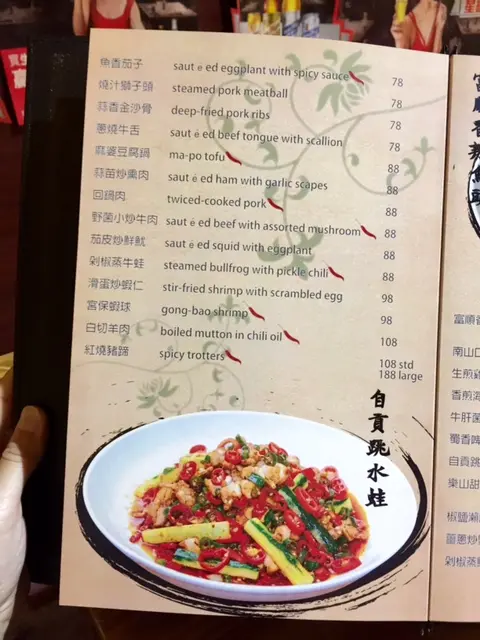 魚香茄子 saut é ed eggplant with spicy sauce 78
燒汁獅子頭 steamed pork meatball 78
蒜香金沙骨 deep-fried pork ribs 78
蔥燒牛舌 saut é ed beef tongue with scallion 78
麻婆豆腐鍋 ma-po tofu 88
蒜苗炒熏肉 saut é ed ham with garlic scapes 88
回鍋肉 twiced-cooked pork 88
野菌小炒牛肉 saut é ed beef with assorted mushroom 88
茄皮炒鮮魷 saut é ed squid with eggplant 88
剁椒蒸牛蛙 steamed bullfrog with pickle chili 88
滑蛋炒蝦仁 stir-fried shrimp with scrambled egg 98
宮保蝦球 gong-bao shrimp 98
白切羊肉 boiled mutton in chili oil 108
紅燒豬蹄 spicy trotters 108 std
188 large
自貢跳水蛙
富順香
南山口
生煎雞
香煎海
牛肝菌
蜀香啤
自貢跳
樂山甜
椒鹽瀨
薑蔥炒
剁椒蒸